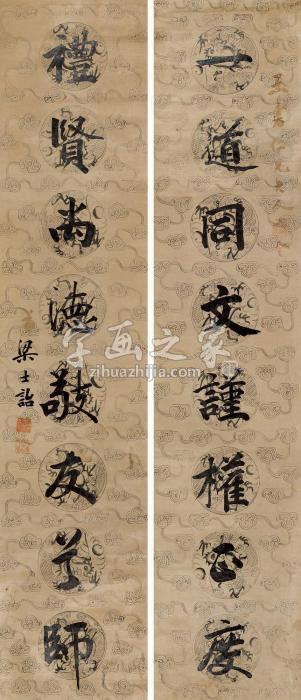 一道同文謹權正度
禮賢尚德敬友尊師
梁士詒
字画之家
zihuazhijia.com